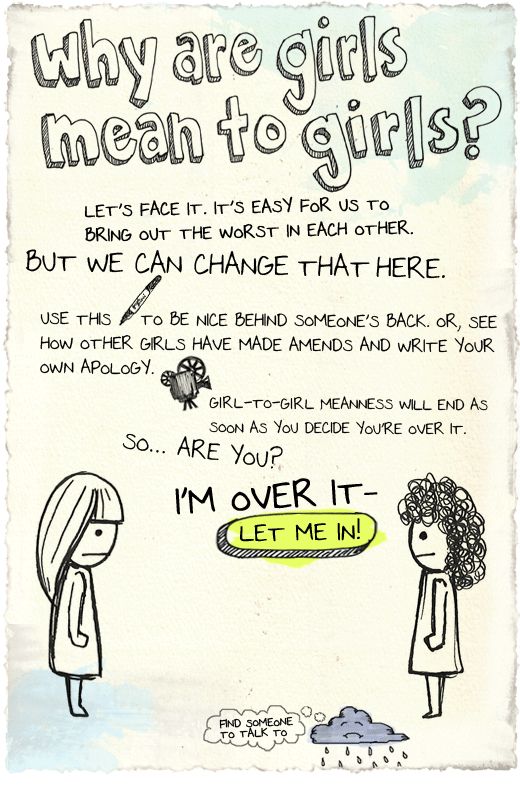 Why are girls
mean to girls?
LET'S FACE IT. IT'S EASY FOR US TO
BRING OUT THE WORST IN EACH OTHER.
BUT WE CAN CHANGE THAT HERE.
USE THIS TO BE NICE BEHIND SOMEONE'S BACK. OR, SEE
HOW OTHER GIRLS HAVE MADE AMENDS AND WRITE YOUR
OWN APOLOGY.
GIRL-TO-GIRL MEANNESS WILL END AS
SOON AS YOU DECIDE YOU'RE OVER IT.
SO... ARE YOU?
I'M OVER IT-
LET ME IN!
FIND SOMEONE
TO TALK TO